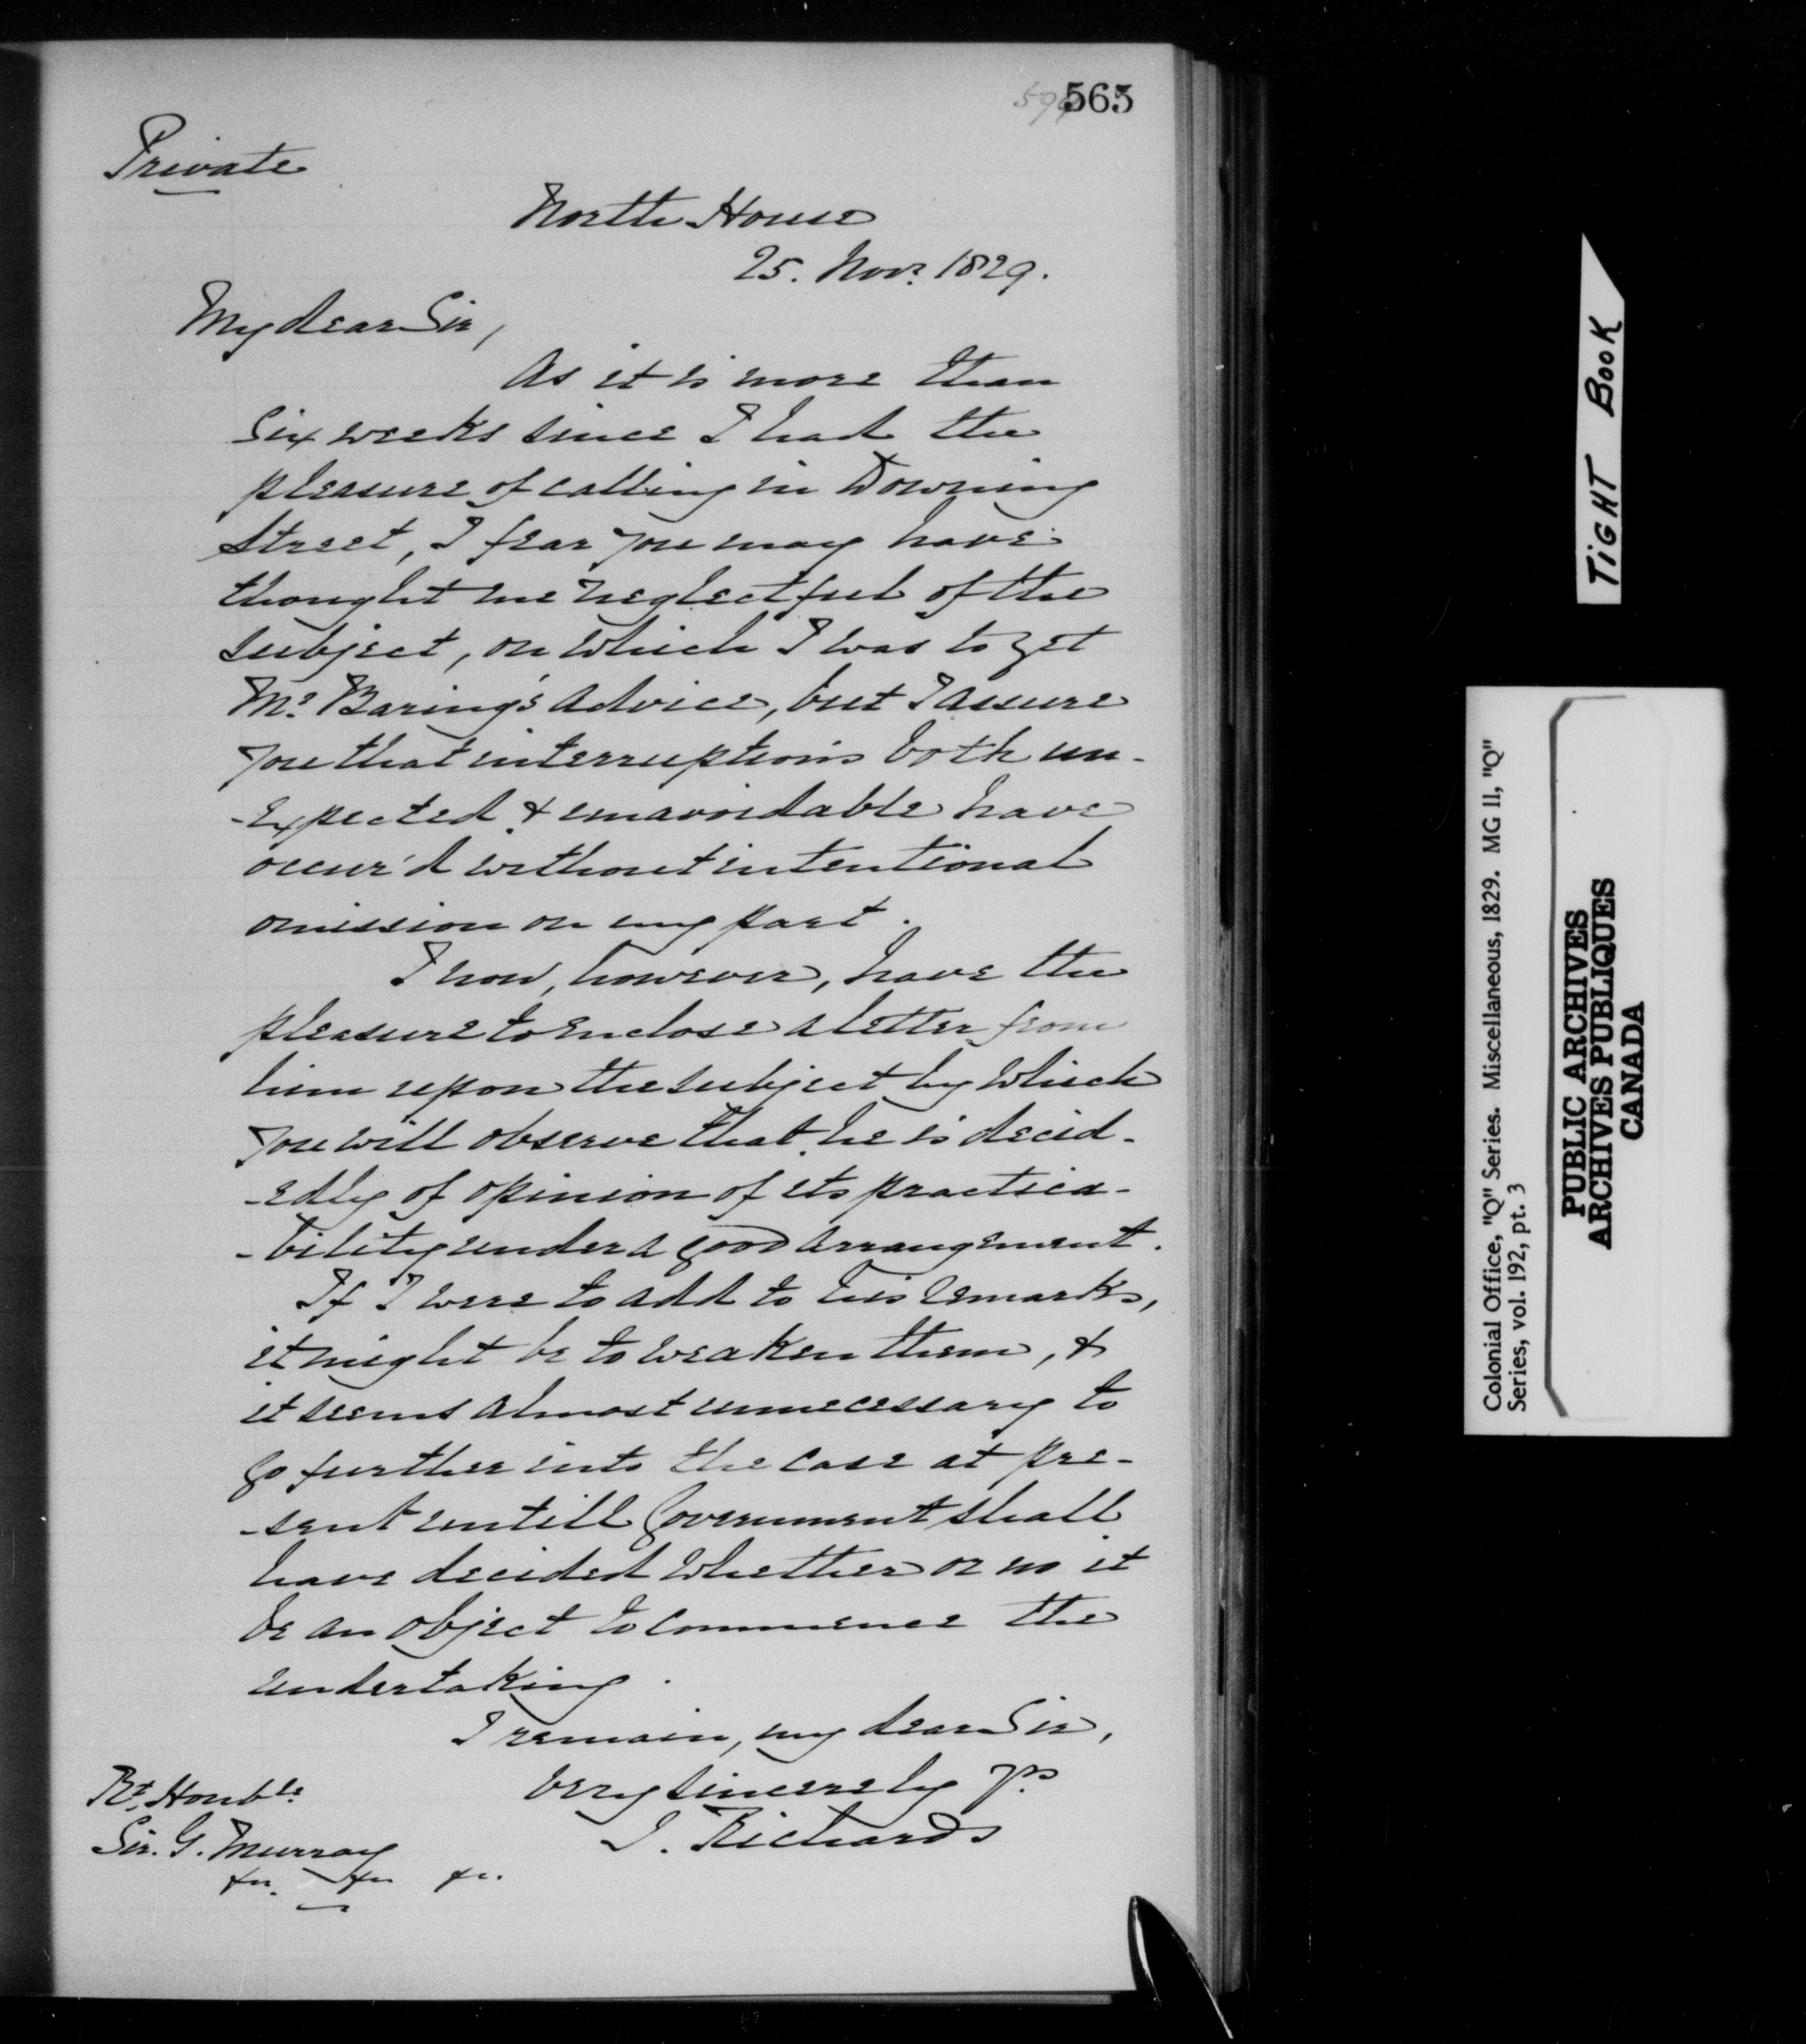 565
Private
North House
25. Novr. 1829.
My dear Sir,
As it is more than
Six weeks since I had the
pleasure of calling in Downing
Street, I fear you may have
thought me neglectful of the
subject, on which I was to get
Mr. Baring's advice, but I assure
you that interruptions both un-
-expected & unavoidable have
occur'd without intentional
omission on my part.
I now, however, have the
pleasure to enclose a letter from
him upon the subject by which
you will observe that he is decid-
-edly of opinion of its practica-
-bility under a good arrangement.
If I were to add to his remarks,
it might be to weaken them, &
it seems almost unnecessary to
go further into the case at pre-
-sent untill Government shall
have decided whether or no it
be an object to commence the
undertaking.
I remain, my dear Sir,
Very sincerely yrs
J. Richards
Rt. Honble.
Sir. G. Murray
&c. &c &c.
TIGHT BOOK
Colonial Office, "Q" Series. Miscellaneous, 1829. MG 11, "Q"
Series, vol. 192, pt. 3
PUBLIC ARCHIVES
ARCHIVES PUBLIQUES
CANADA